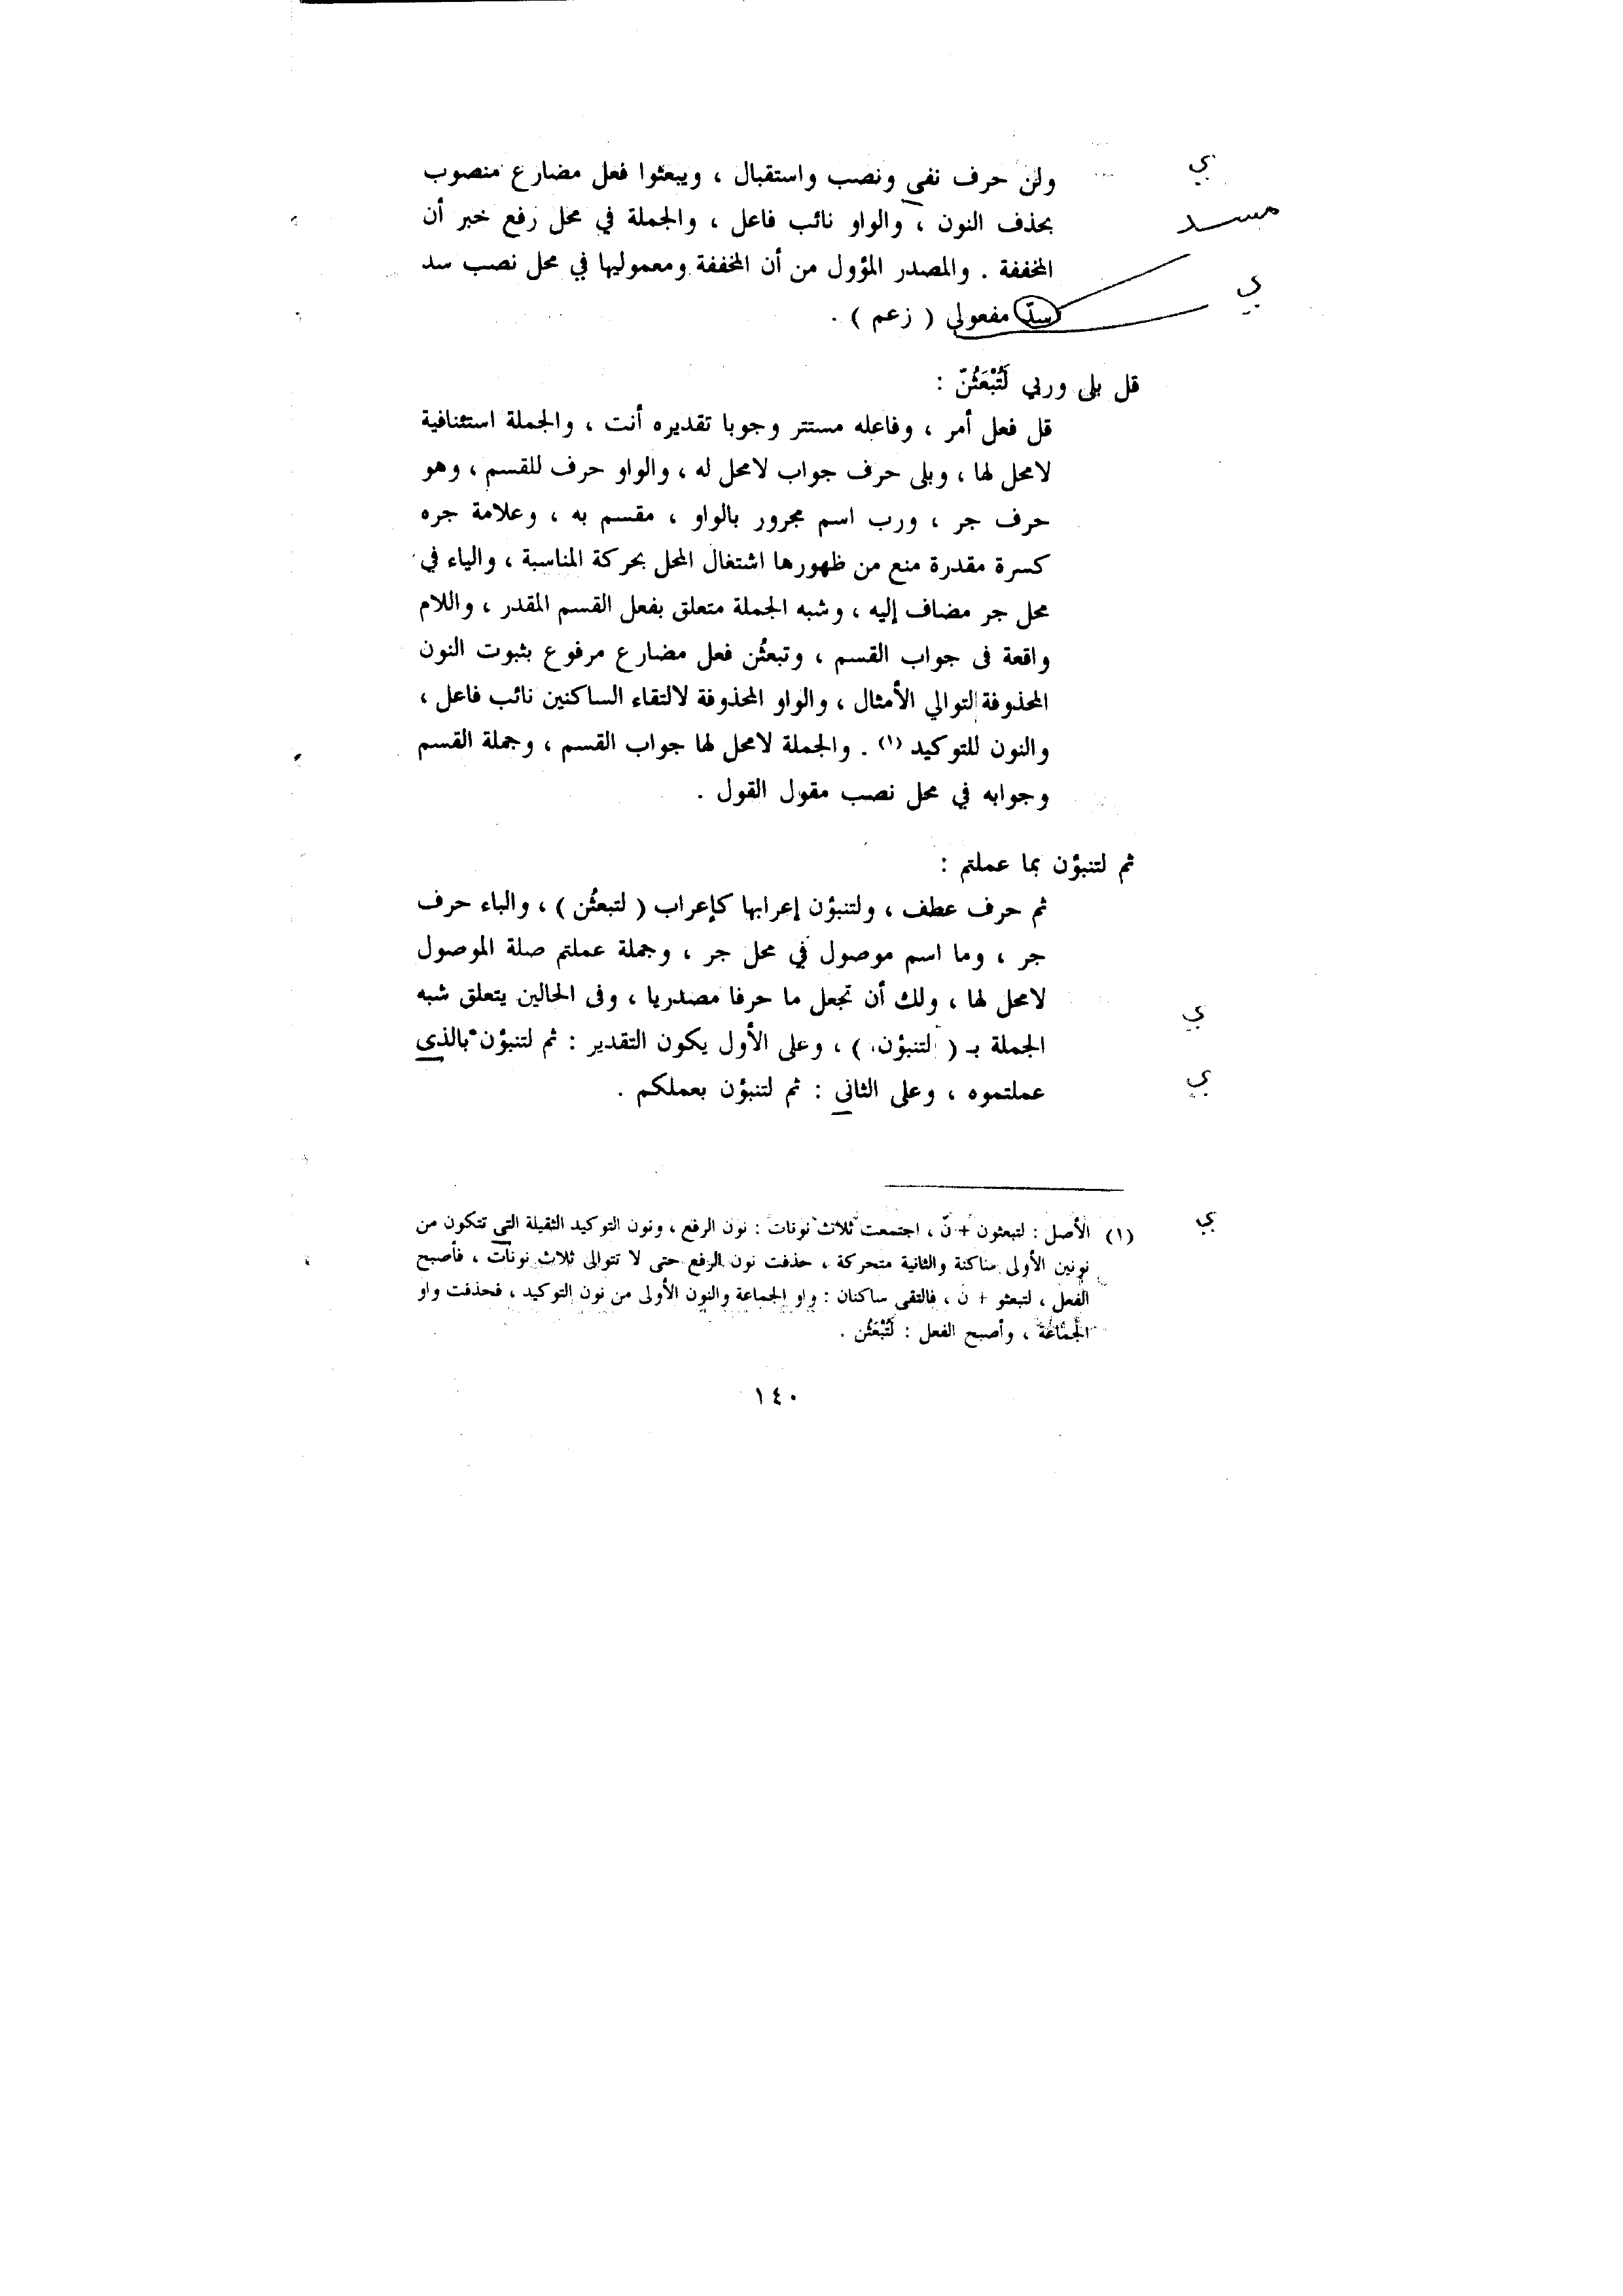 ولن حرف نفي ونصب واستقبال ، ويبعثوا فعل مضارع منصوب
ي
بحذف النون ، والواو نائب فاعل ، والجملة في محل رفع خبر أن
مسد
المخففة . والمصدر المؤول من أن المخففة ومعموليها في محل نصب سد
ي
سدّ مفعولي ( زعم ) .
قل بلى وربي لَتُبْعَثُنّ :
قل فعل أمر ، وفاعله مستتر وجوبا تقديره أنت ، والجملة استئنافية
لامحل لها ، وبلى حرف جواب لامحل له ، والواو حرف للقسم ، وهو
حرف جر ، ورب اسم مجرور بالواو ، مقسم به ، وعلامة جره
كسرة مقدرة منع من ظهورها اشتغال المحل بحركة المناسبة ، والياء في
محل جر مضاف إليه ، وشبه الجملة متعلق بفعل القسم المقدر ، واللام
واقعة فى جواب القسم ، وتبعثُن فعل مضارع مرفوع بثبوت النون
المحذوفة لتوالي الأمثال ، والواو المحذوفة لالتقاء الساكنين نائب فاعل ،
والنون للتوكيد (١) . والجملة لامحل لها جواب القسم ، وجملة القسم
وجوابه في محل نصب مقول القول .
ثم لتنبؤن بما عملتم :
ثم حرف عطف ، ولتنبؤن إعرابها كإعراب ( لتبعثُن ) ، والباء حرف
جر ، وما اسم موصول في محل جر ، وجملة عملتم صلة الموصول
لامحل لها ، ولك أن تجعل ما حرفا مصدريا ، وفى الحالين يتعلق شبه
ي
الجملة بـ ( لتنبؤن ) ، وعلى الأول يكون التقدير : ثم لتنبؤن بالذى
عملتموه ، وعلى الثانى : ثم لتنبؤن بعملكم .
ي
(١) الأصل : لتبعثون + نّ ، اجتمعت ثلاث نونات : نون الرفع ، ونون التوكيد الثقيلة التى تتكون من
ي
نونين الأولى ساكنة والثانية متحركة ، حذفت نون الرفع حتى لا تتوالى ثلاث نونات ، فأصبح
الفعل ، لتبعثو + ن ، فالتقى ساكنان : واو الجماعة والنون الأولى من نون التوكيد ، فحذفت واو
الجماعة ، وأصبح الفعل : لَتُبْعَثُن .
١٤٠